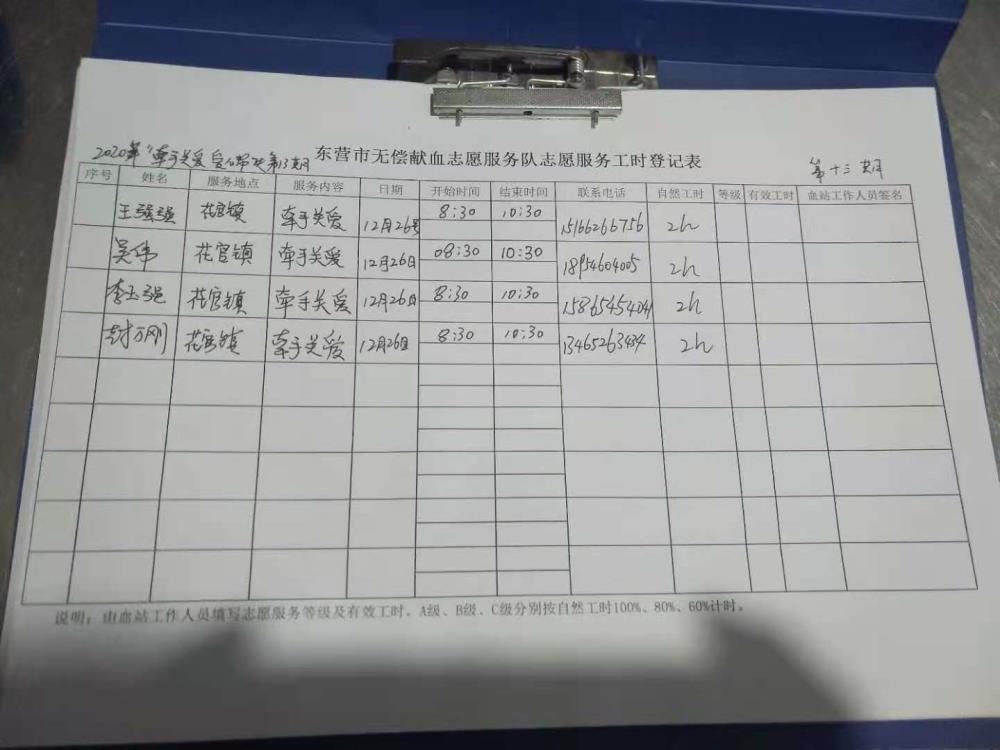 2020年"牵手关爱 第13期
东营市无偿献血志愿服务队志愿服务工时登记表
第十三期
序号 姓名 服务地点 服务内容 日期 开始时间 结束时间 联系电话 自然工时 等级 有效工时 血站工作人员签名
王强强 花官镇 牵手关爱 12月26号 8:30 10:30 15166266756 2h
吴伟 花官镇 牵手关爱 12月26日 08:30 10:30 18954604005 2h
李玉强 花官镇 牵手关爱 12月26日 8:30 10:30 2h
封万刚 花官镇 牵手关爱 12月26日 8:30 10:30 13465263434 2h
说明：由血站工作人员填写志愿服务等级及有效工时。A级、B级、C级分别按自然工时100%、80%、60%计时。